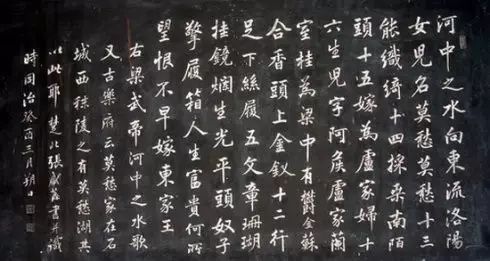 河中之水向東流洛陽
女兒名莫愁莫愁十三
能織綺十四採桑南陌
頭十五嫁為盧家婦十
六生兒字阿侯盧家蘭
室桂為梁中有鬱金蘇
合香頭上金釵十二行
足下絲履五文章珊瑚
挂鏡爛生光平頭奴子
擎履箱人生富貴何所
望恨不早嫁東家王
右梁武帝河中之水歌
又古樂府云莫愁家在石
城西秣陵之有莫愁湖其
以此耶 楚北張盛藻書并識
時同治癸酉三月朔日